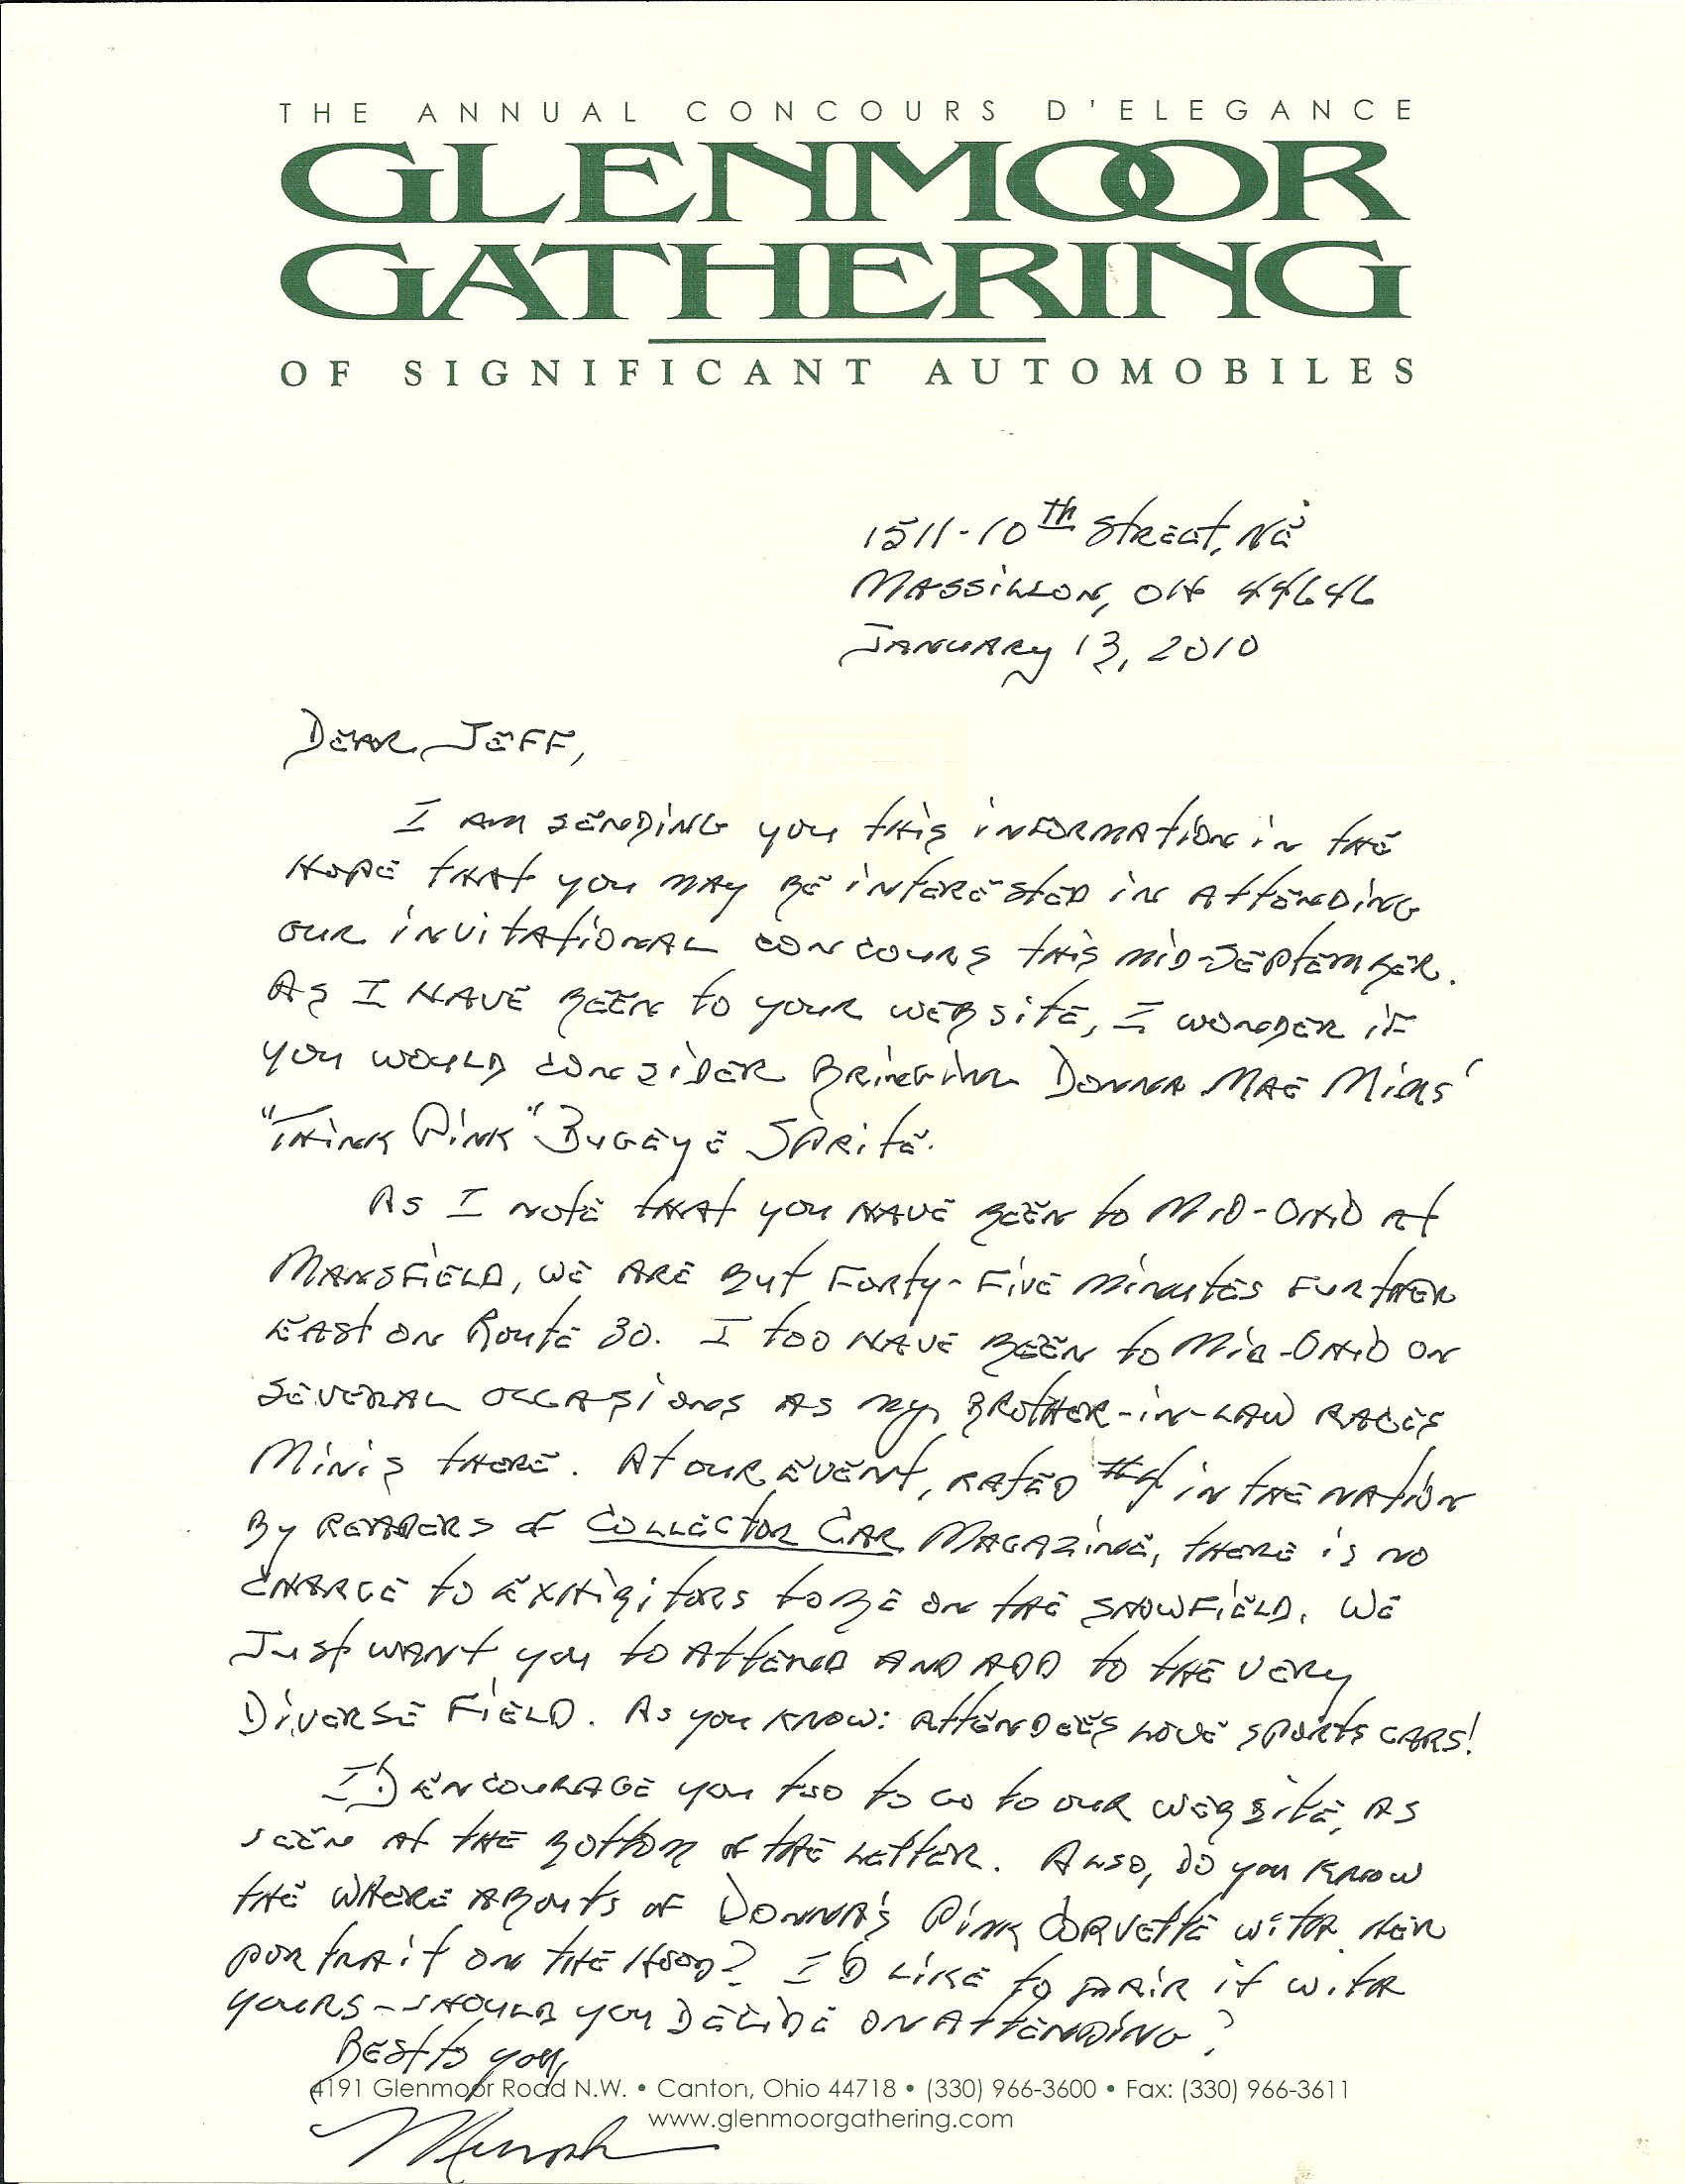 THE ANNUAL CONCOURS D'ELEGANCE
GLENMOOR
GATHERING
OF SIGNIFICANT AUTOMOBILES
1511-10th Street, NE
Massillon, OH 44646
January 13, 2010
Dear Jeff,
I am sending you this information in the
hope that you may be interested in attending
our invitational concours this mid-September.
As I have been to your website, I wonder if
you would consider bringing Donna Mae Mims'
"Think Pink" Bugeye Sprite.
As I note that you have been to Mid-Ohio at
Mansfield, we are but forty-five minutes further
east on Route 30. I too have been to Mid-Ohio on
several occasions as my brother-in-law races
Minis there. At our event, rated in the nation
by readers of Collector Car Magazine, there is no
charge to exhibitors to be on the showfield. We
just want you to attend and add to the very
diverse field. As you know: attendees love sports cars!
I'd encourage you too to go to our website, as
seen at the bottom of the letter. Also, do you know
the where abouts of Donna's pink Corvette with her
portrait on the hood? I'd like to pair it with
yours - should you decide on attending?
Best to you,
4191 Glenmoor Road N.W. • Canton, Ohio 44718 • (330) 966-3600 • Fax: (330) 966-3611
www.glenmoorgathering.com